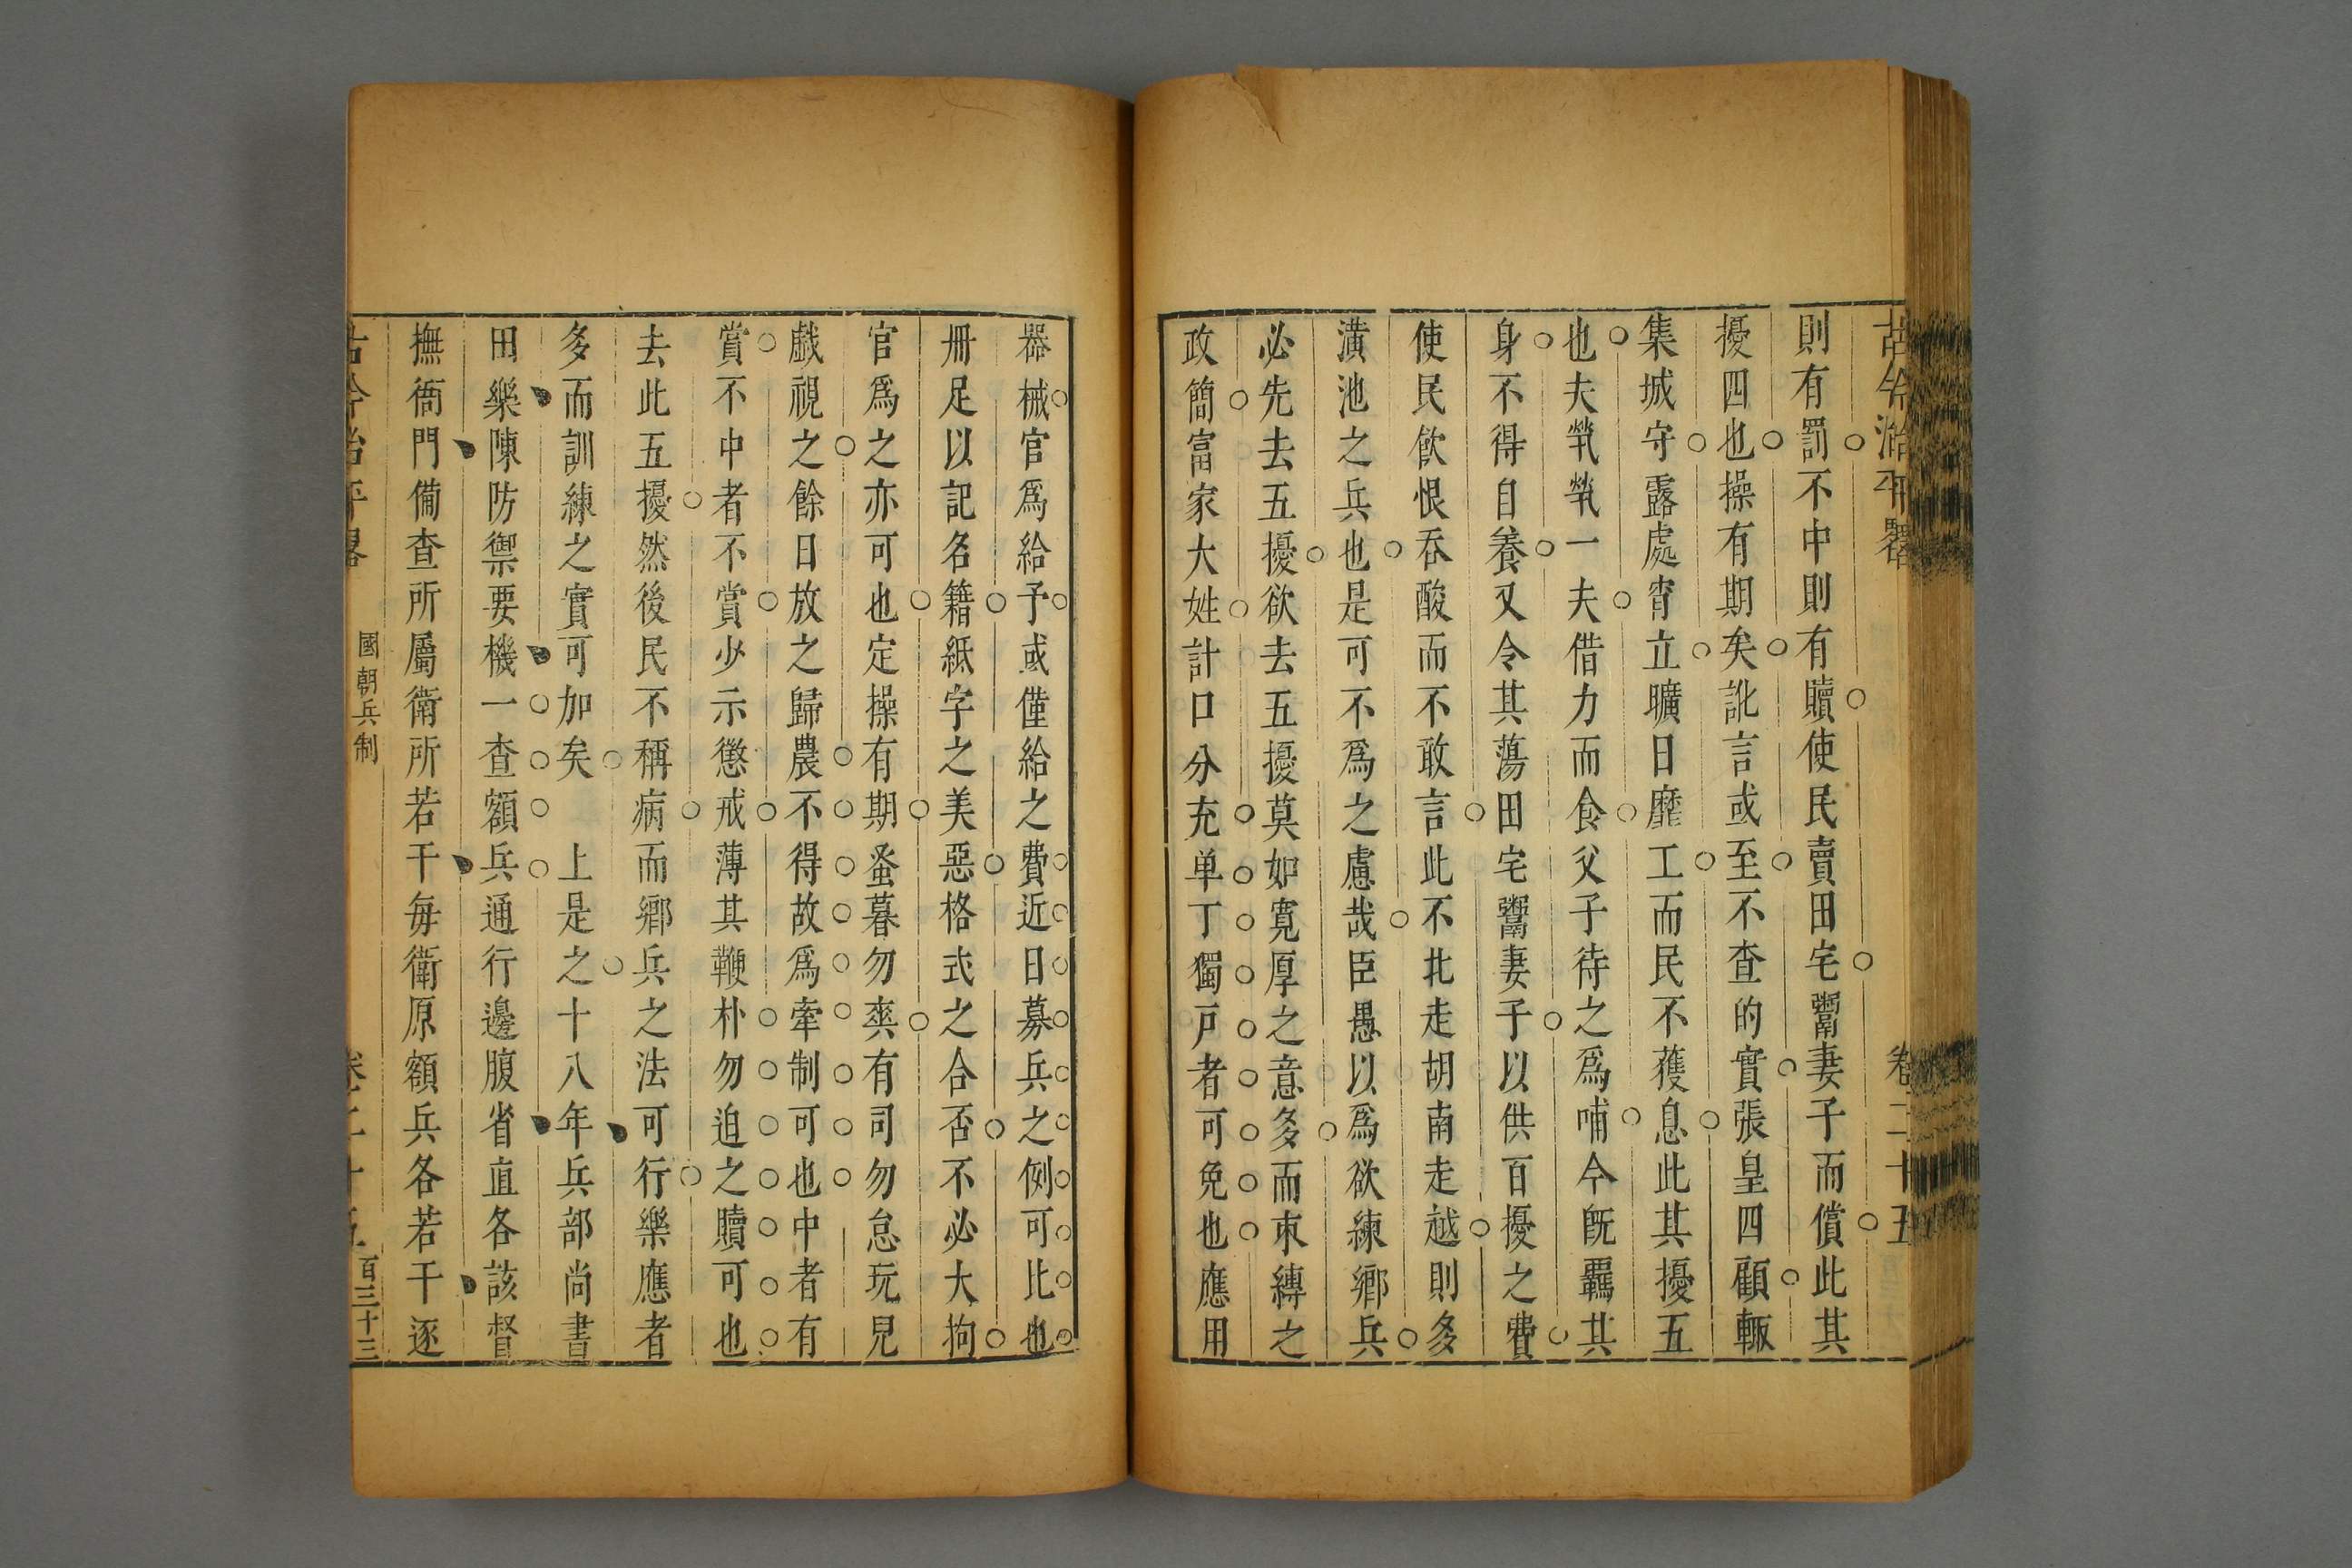 古今治平略 卷二十五
則有罰不中則有贖使民賣田宅鬻妻子而償此其
擾四也操有期矣訛言或至不查的實張皇四顧輙
集城守露處宵立曠日靡工而民不獲息此其擾五
也夫煢煢一夫借力而食父子待之爲哺今旣羈其
身不得自養又令其蕩田宅鬻妻子以供百擾之費
使民飲恨吞酸而不敢言此不北走胡南走越則多
潢池之兵也是可不爲之慮哉臣愚以爲欲練鄉兵
必先去五擾欲去五擾莫如寛厚之意多而束縛之
政簡富家大姓計口分充単丁獨戸者可免也應用
器械官爲給予或僅給之費近日募兵之例可比也
冊足以記名籍紙字之美惡格式之合否不必大拘
官爲之亦可也定操有期蚤暮勿爽有司勿怠玩兒
戱視之餘日放之歸農不得故爲牽制可也中者有
賞不中者不賞少示懲戒薄其鞭朴勿迫之贖可也
去此五擾然後民不稱病而鄉兵之法可行樂應者
多而訓練之實可加矣　上是之十八年兵部尚書
田樂陳防禦要機一查額兵通行邊腹省直各該督
撫衙門備查所屬衛所若干每衛原額兵各若干逐
古今治平畧 國朝兵制 卷二十五 百三十三